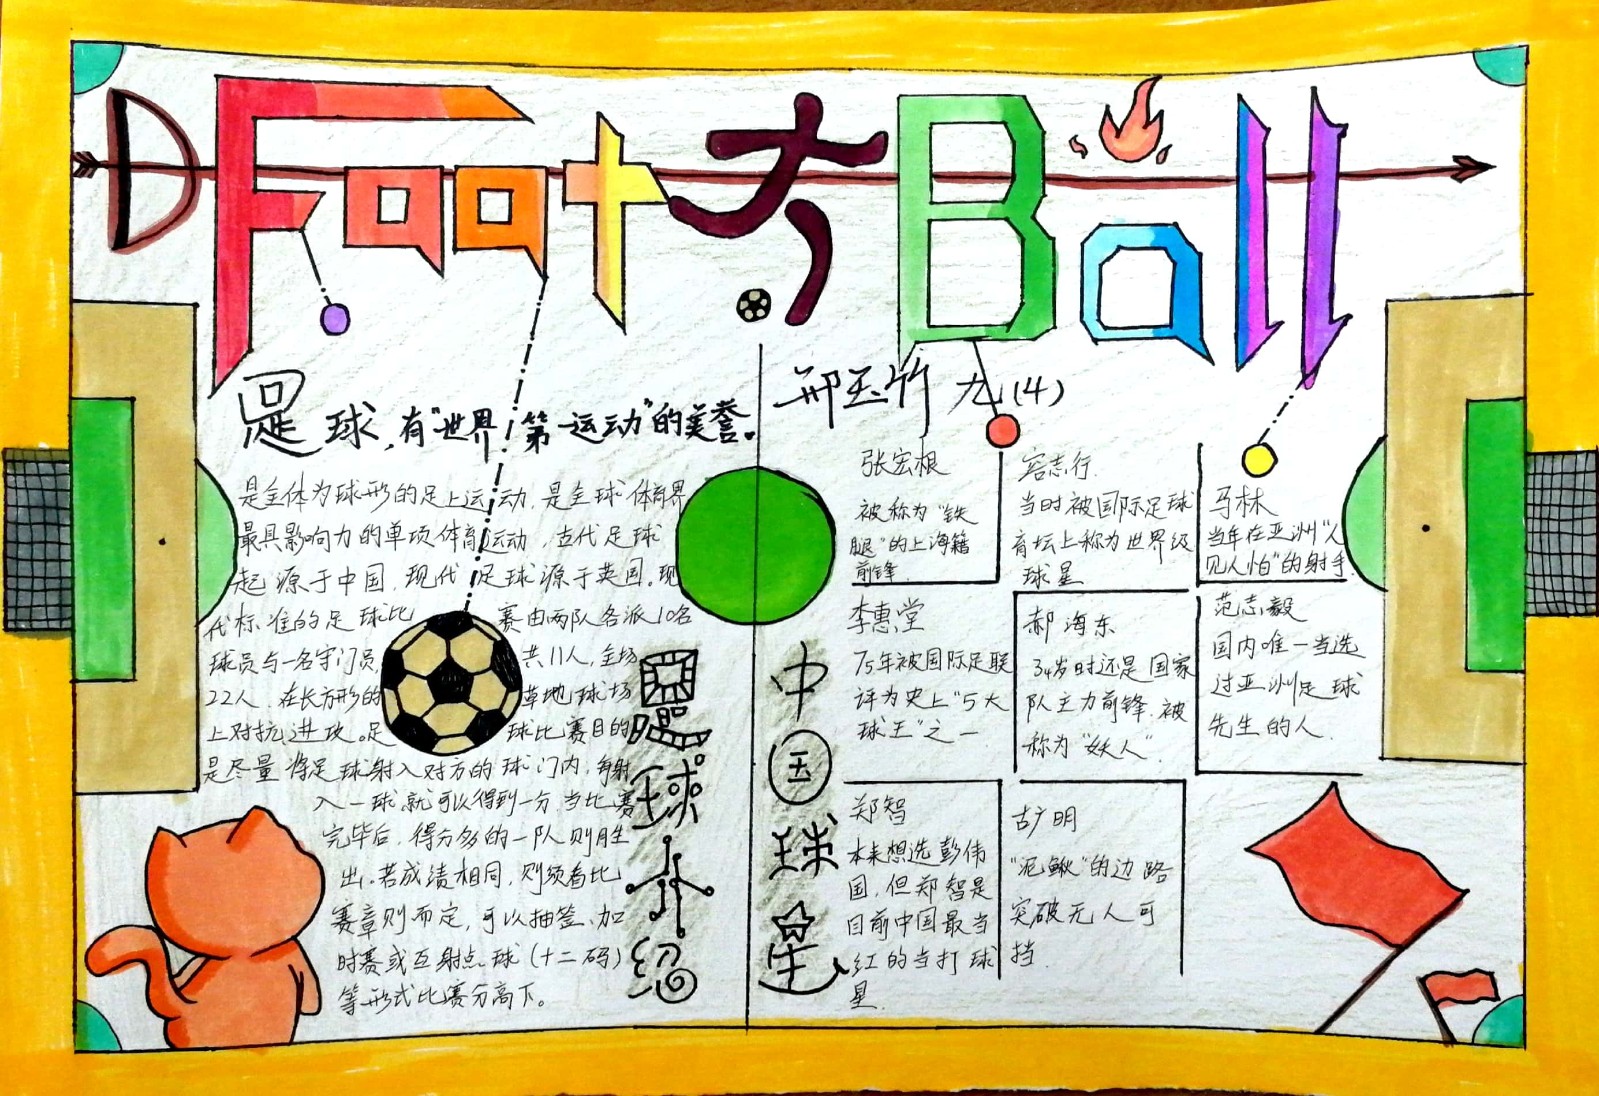 Foot Ball
足球,有"世界第一运动"的美誉。
邢玉竹 九(4)
是全体为球形的足上运动,是全球体育界
最具影响力的单项体育运动,古代足球
起源于中国,现代足球源于英国。现
代标准的足球比赛由两队各派10名
球员与一名守门员 共11人,全场
22人 在长方形的草地球场
上对抗,进攻。足球比赛目的
是尽量将足球射入对方的球门内,每射
入一球就可以得到一分,当比赛
完毕后,得分多的一队则胜
出。若成绩相同,则须看比
赛章则而定,可以抽签、加
时赛或互射点球(十二码)
等形式比赛分高下。
足球介绍
中国球星
张宏根
被称为"铁
腿"的上海籍
前锋
容志行
当时被国际足球
育坛上称为世界级
球星
马林
当年在亚洲"人
见人怕"的射手
李惠堂
75年被国际足联
评为史上"5大
球王"之一
郝海东
34岁时还是国家
队主力前锋,被
称为"妖人"
范志毅
国内唯一当选
过亚洲足球
先生的人.
郑智
本来想选彭伟
国,但郑智是
目前中国最当
红的当打球
星
古广明
"泥鳅"的边路
突破无人可
挡